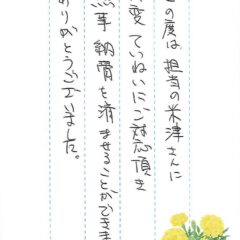 の度は 担当の米津さんに
変 ていねいにご対応頂き
事 納骨を済ませることができま
ありがとうございました。